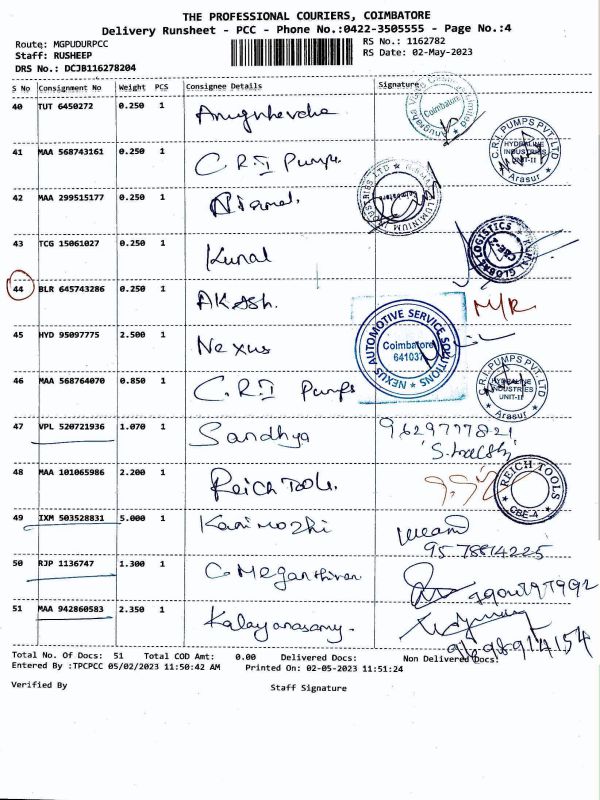 THE PROFESSIONAL COURIERS, COIMBATORE
Delivery Runsheet - PCC - Phone No.:0422-3505555 - Page No.:4
Route: MGPUDURPCC
Staff: RUSHEEP
DRS No.: DCJB116278204
RS No.: 1162782
RS Date: 02-May-2023
S No Consignment No Weight PCS Consignee Details Signature
40 TUT 6450272 0.250 1
Coimbatore
41 MAA 568743161 0.250 1 C.R.I Pumps.
C.R.I. PUMPS PVT LTD HYDRALINE INDUSTRIES UNIT-II Arasur
42 MAA 299515177 0.250 1 Nirmal.
43 TCG 15061027 0.250 1 Kunal
KUNAL GLOBAL LOGISTICS CBE-24
44 BLR 645743286 0.250 1 Akash. M/R
45 HYD 95097775 2.500 1 Nexus
NEXUS AUTOMOTIVE SERVICE SOLUTIONS Coimbatore 641037
46 MAA 568764070 0.850 1 C.R.I Pumps
C.R.I. PUMPS PVT LTD HYDRALINE INDUSTRIES UNIT-II Arasur
47 VPL 520721936 1.070 1 Sandhya 9629777821
48 MAA 101065986 2.200 1 Reich Tools.
REICH TOOLS CBE-4
49 IXM 503528831 5.000 1 Kanimozhi
95-78814225
50 RJP 1136747 1.300 1
51 MAA 942860583 2.350 1 Kalayanasamy.
Total No. Of Docs: 51 Total COD Amt: 0.00 Delivered Docs: Non Delivered Docs:
Entered By :TPCPCC 05/02/2023 11:50:42 AM Printed On: 02-05-2023 11:51:24
Verified By Staff Signature